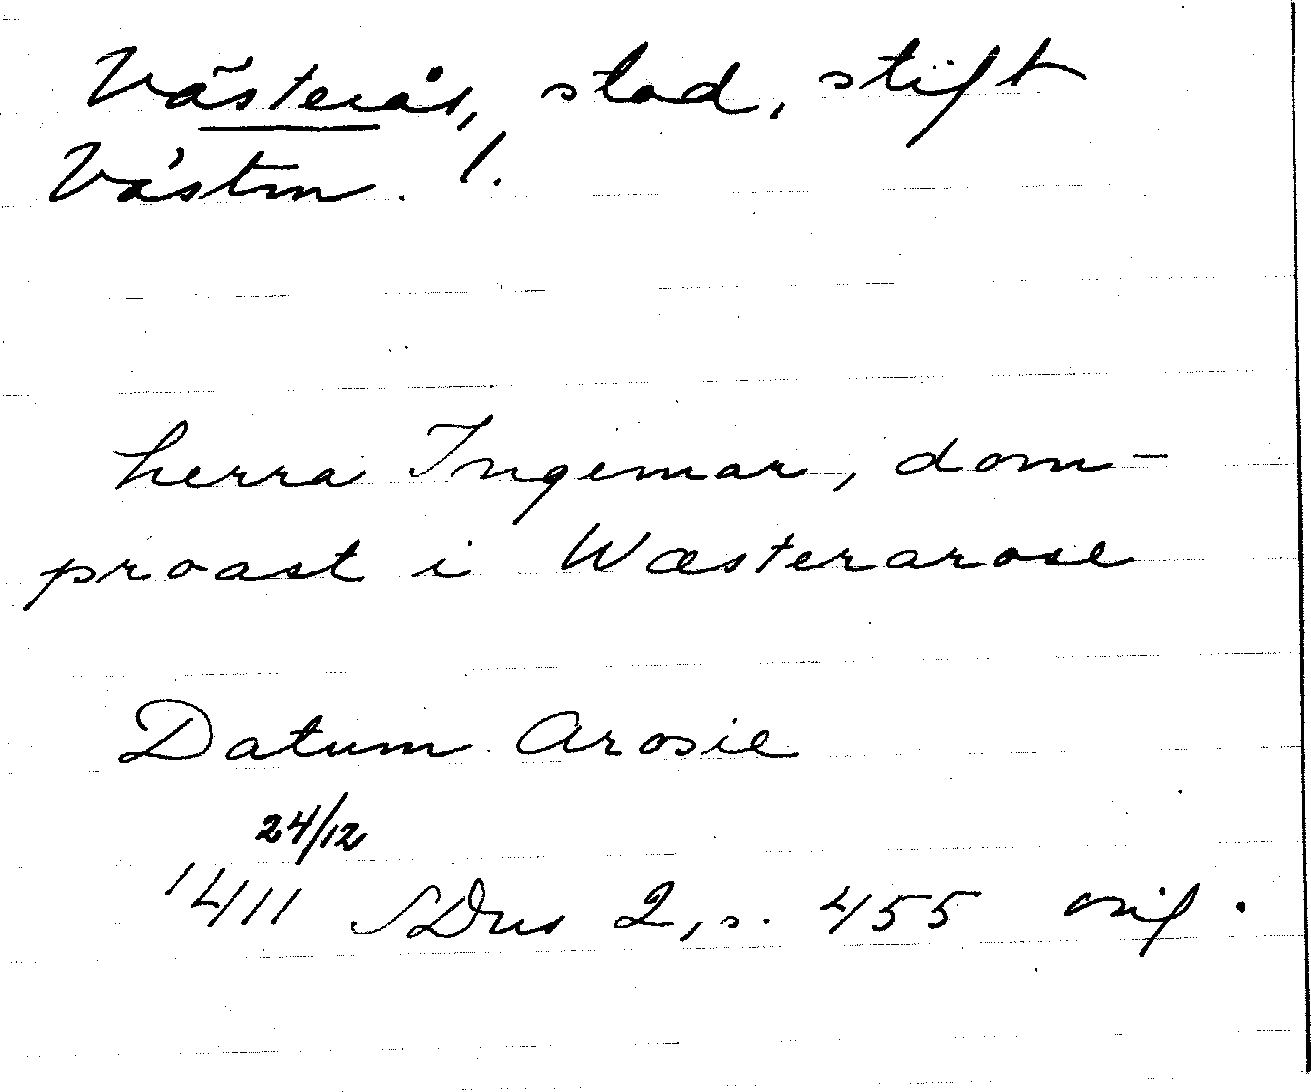 Västerås, stad, stift
Västm. l.
herra Ingemar, dom-
proast i Wæsterarose
Datum Arosie
24/12
1411 SDns 2, s. 455 orig.